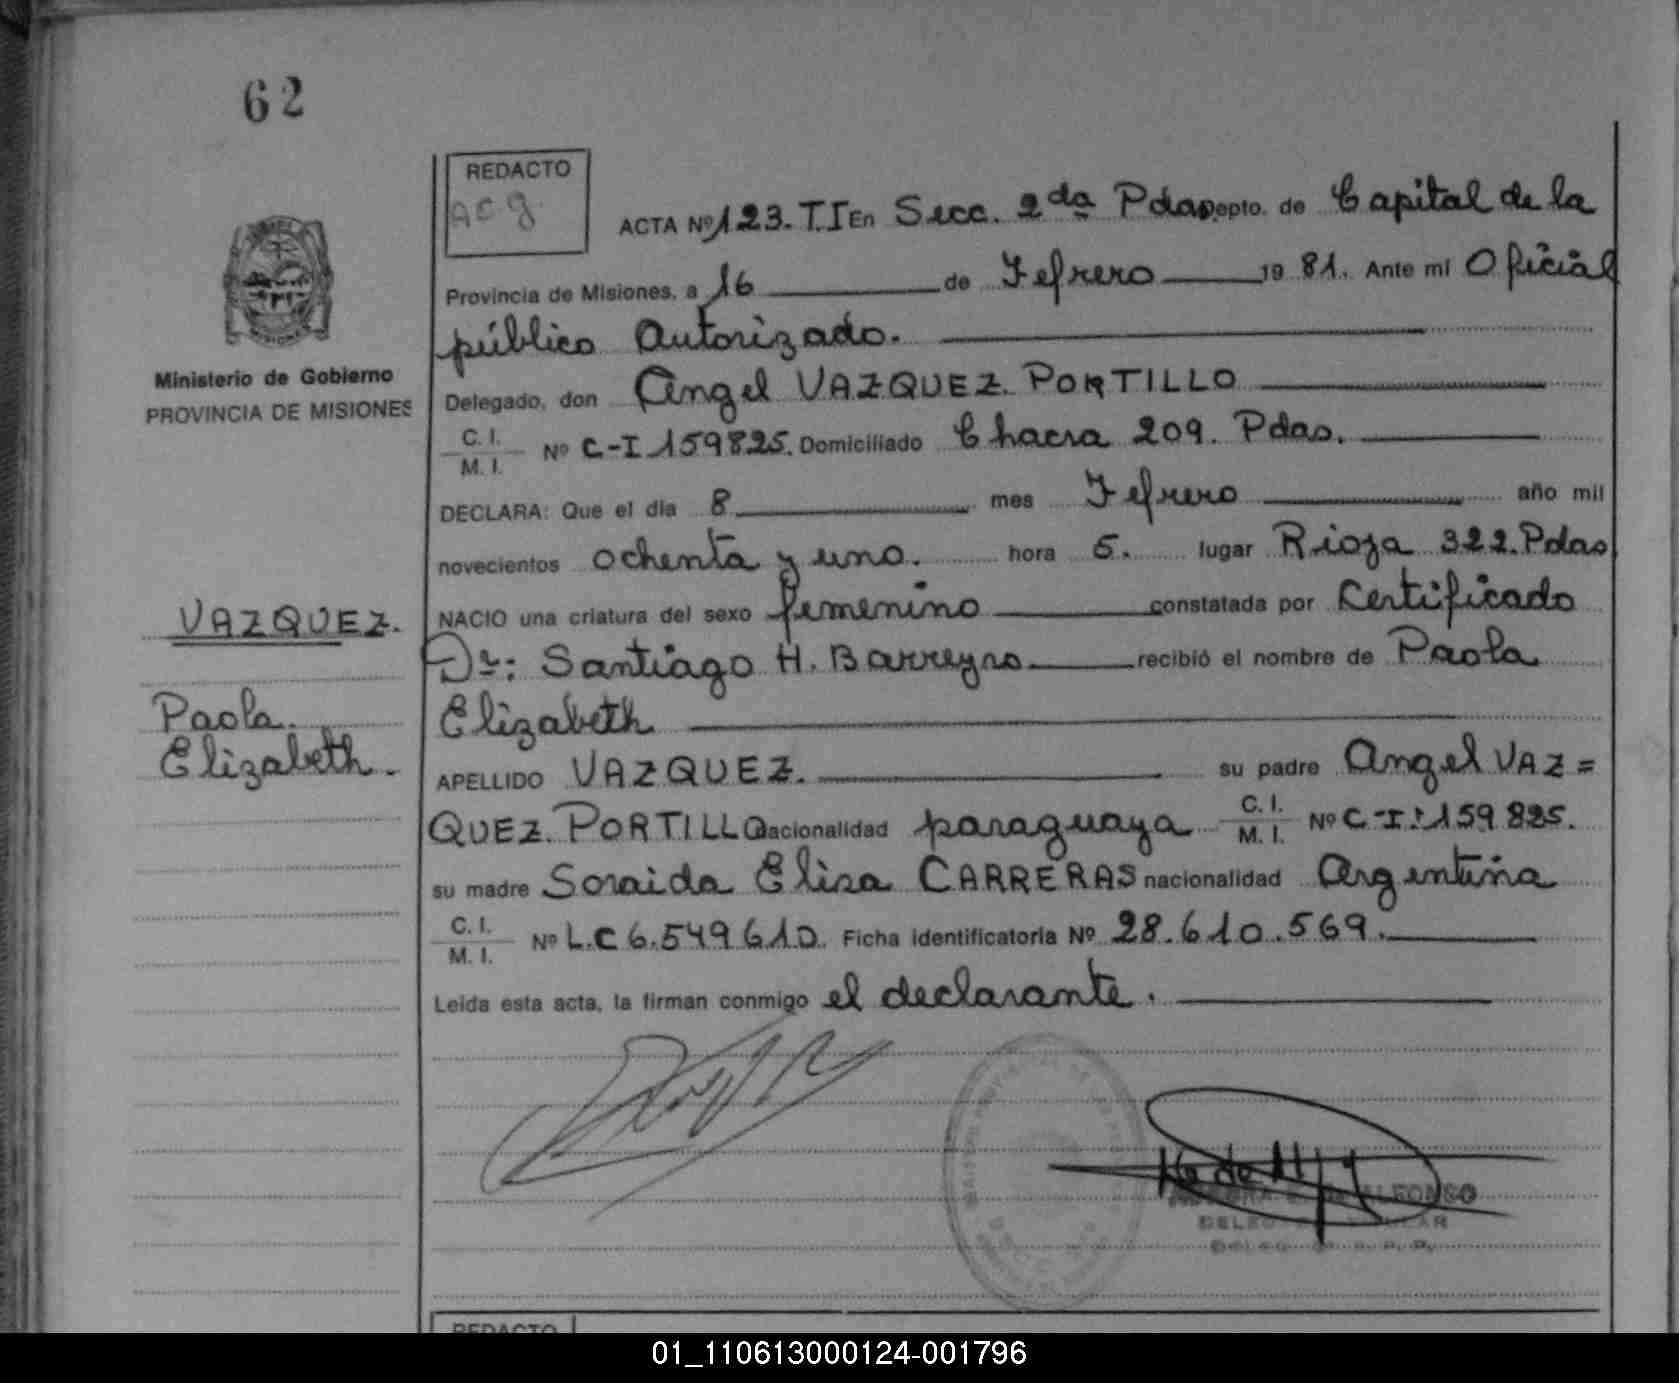 62
REDACTO
acg
ACTA Nº 123. T.I En Secc. 2da Pdas Depto. de Capital de la
Provincia de Misiones, a 16 de Febrero 19 81. Ante mi Oficial
público Autorizado.
Ministerio de Gobierno
PROVINCIA DE MISIONES
Delegado, don Angel VAZQUEZ. PORTILLO
C. I.
M. I. Nº C-I 159825. Domiciliado Chacra 209. Pdas.
DECLARA: Que el día 8 mes Febrero año mil
novecientos ochenta y uno. hora 5. lugar Rioja 322. Pdas
VAZQUEZ.
NACIO una criatura del sexo femenino constatada por Certificado
Dr: Santiago H. Barreyro recibió el nombre de Paola
Paola
Elizabeth
Elizabeth.
APELLIDO VAZQUEZ. su padre Angel VAZ=
QUEZ. PORTILLO nacionalidad paraguaya C. I.
M. I. Nº C-I: 159 825.
su madre Soraida Elisa CARRERAS nacionalidad Argentina
C. I.
M. I. Nº L.C 6.549 610. Ficha identificatoria Nº 28.610.569.
Leída esta acta, la firman conmigo el declarante.
ALFONSO
REDACTO
01_110613000124-001796